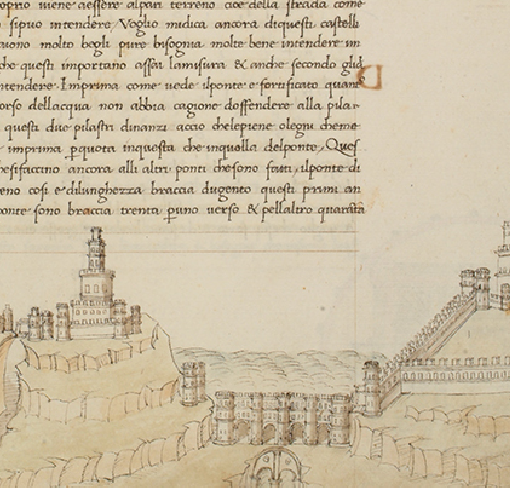 oprio uiene aessere alpari terreno cioe della strada come
sipuo intendere Voglio midica ancora diquesti castelli
uono molto begli pure bisognia molte bene intendere in
che questi importano assai lamisura & anche secondo gli
ntendere. Imprima come uede ilponte e fortificato quant
orso dellacqua non abbia cagione doffendere alla pila
questi due pilastri dinanzi accio chelepiene olegni cheme
imprima ꝑquota inquesta che inquella delponte. Quest
hesifaccino ancora alli altri ponti chesono fatti, ilponte di
eno cosi e dilunghezza braccia dugento questi primi an
ponte sono braccia trenta ꝑuno uerso & pellaltro quarata